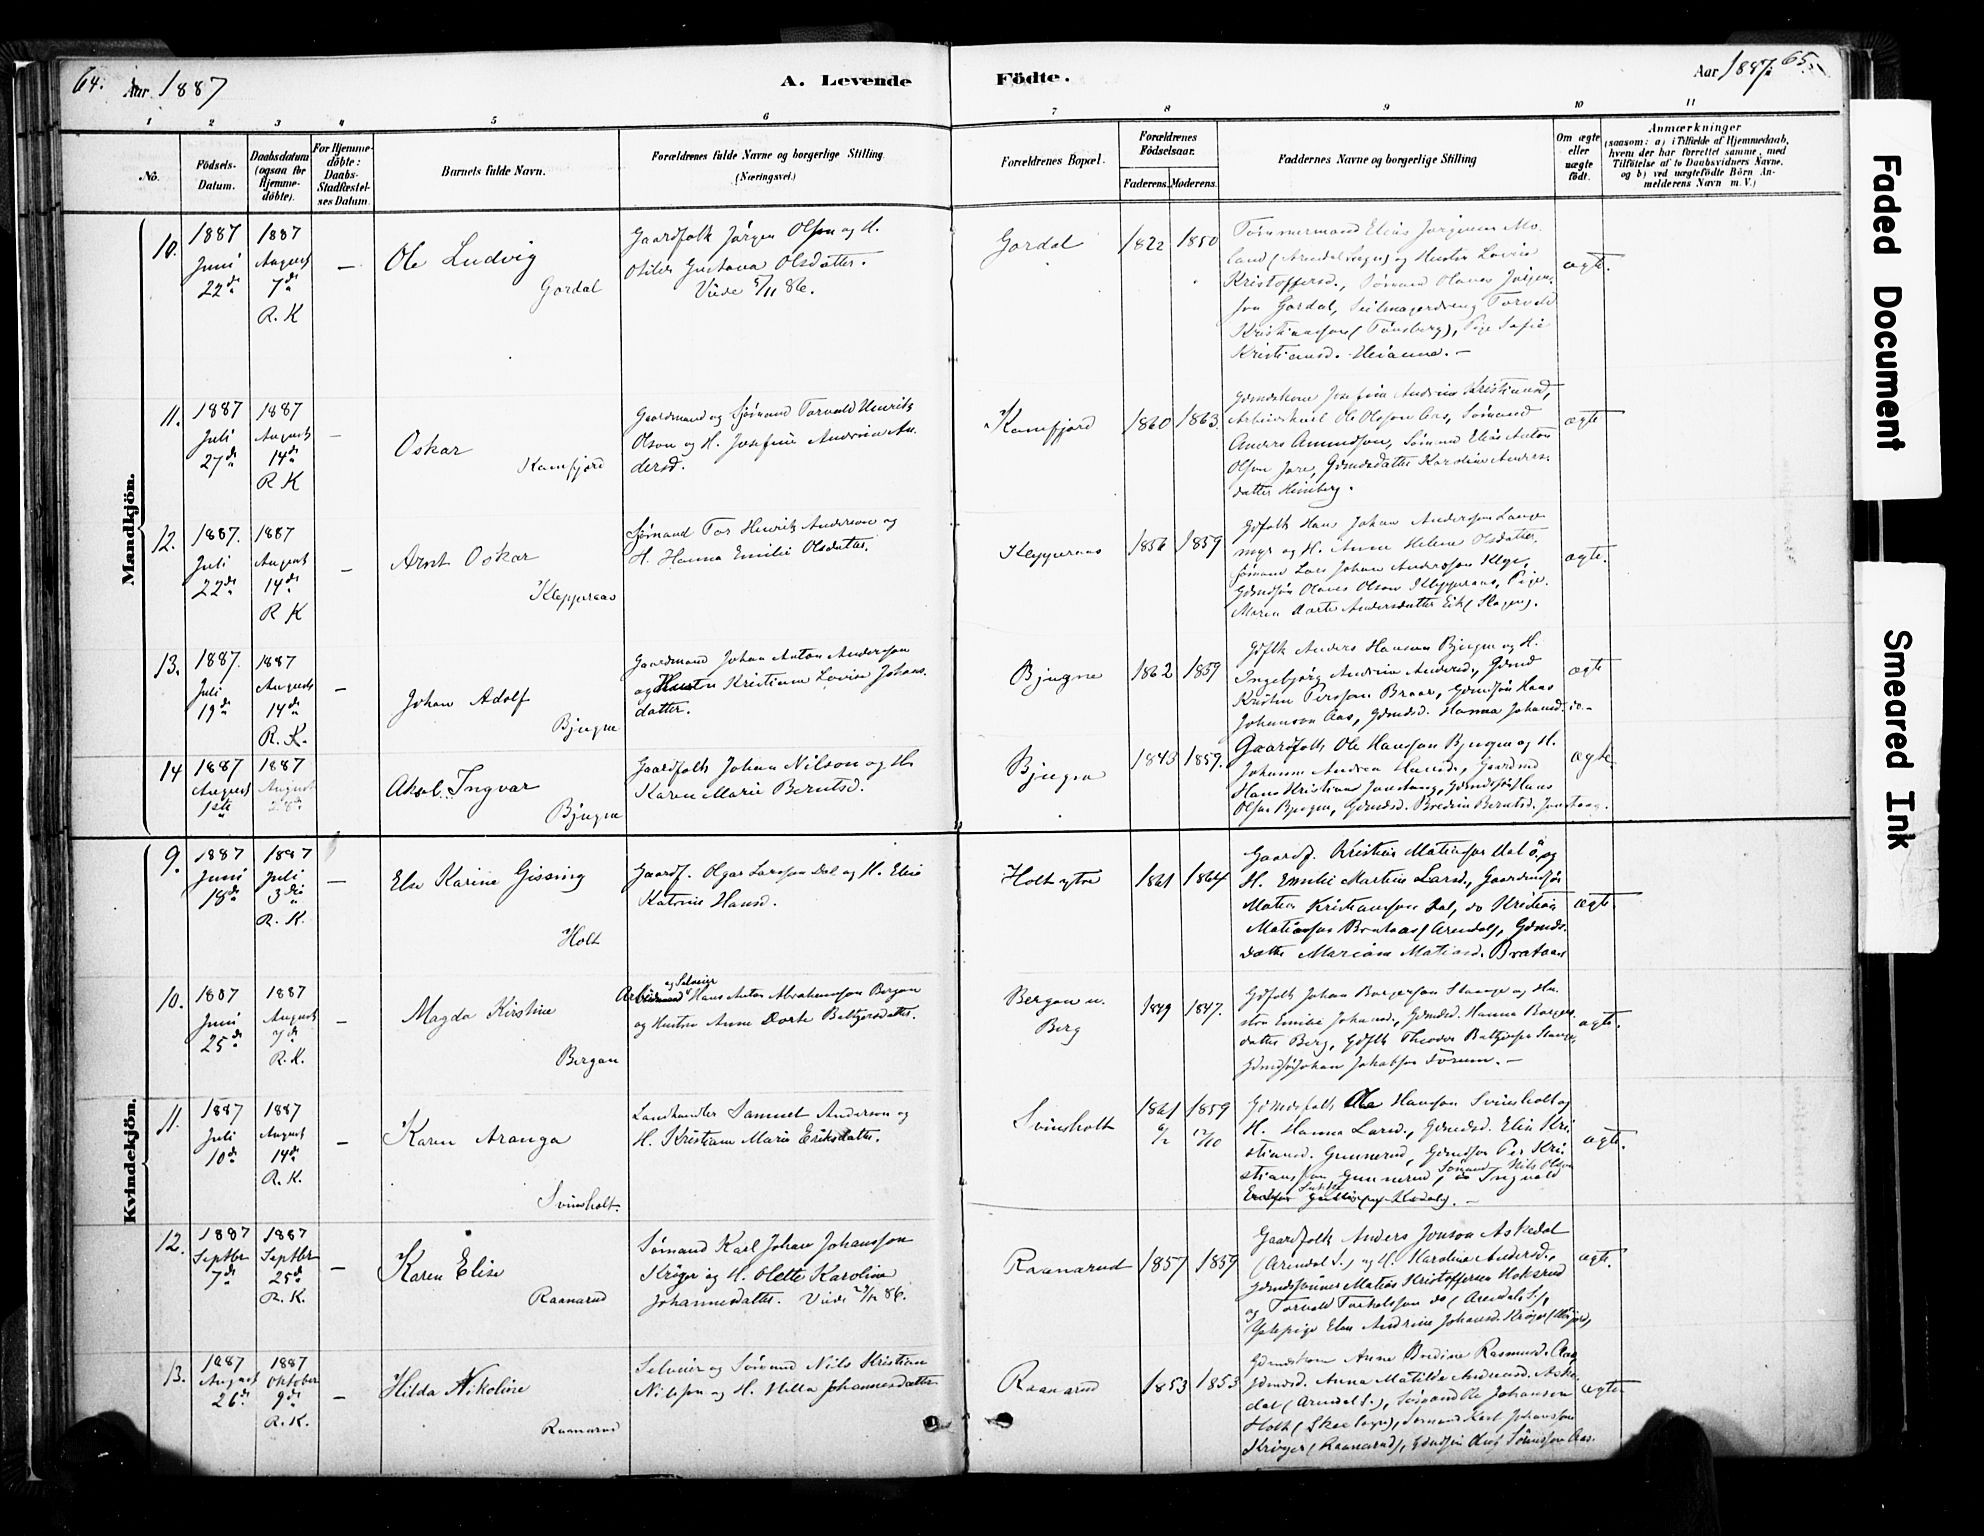 64. Aar 1887
A. Levende
Födte.
Aar 1887. 65.
1 2 3 4 5 6 7 8 9 10 11
No.
Födsels-
Datum.
Daabsdatum
(ogsaa for
Hjemme-
döbte).
For Hjemme-
döbte:
Daabs-
Stadfæstel-
ses Datum.
Barnets fulde Navn.
Forældrenes fulde Navne og borgerlige Stilling
(Næringsvei.)
Forældrenes Bopæl.
Forældrenes
Födselsaar.
Faderens. Moderens.
Faddernes Navne og borgerlige Stilling
Om ægte
eller
uægte
födt.
Anmærkninger
(saasom: a) i Tilfælde af Hjemmedaab,
hvem der har forrettet samme, med
Tilföielse af to Daabsvidners Navne,
og b) ved uægtefödte Börn An-
melderens Navn m. V.)
Mandkjön.
10.
1887
Juni
22de
1887
August
7de
R. K
–
Ole Ludvig
Gordal
Gaardfolk Jørgen Olsen og H.
Otilde Gustava Olsdatter.
Viede 5/11 86.
Gordal
1822 1850
Tømmermand Elias Jørgensen Mo-
land (Arendal Sogn) og Hustru Lovise
Kristoffersd., Sømand Olaves Jørgen-
sen Gordal, Seilmagerdreng Torvald
Kristiansen (Tønsberg), Pige Sofie
Kristiansd.
ægte.
11.
1887
Juli
27de
1887
August
14de
R K
–
Oskar
Kamfjord
Gaardmand og Sjømand Torvald Henrik
Olsen og H. Josefine Andrine An-
dersd.
Kamfjord
1860 1863.
Josefine Andrine Kristiansd,
Arbeidskarl Ole Olsen Aas, Sømand
Anders Amundsen, Sømand Elias Anton
Olsen Jare, Gdmdsdatter Karoline Anders-
datter Himberg.
ægte
12.
1887.
Juli
22de
1887
August
14de
R K
–
Arnt Oskar
Kleppenaas
Sjømand Tor Henrik Andersen og
H. Hanna Emilie Olsdatter.
Kleppenaas
1856 1859
Gdfolk Hans Johan Andersen Lange-
myr og H. Anne Helene Olsdatter,
Sømand Lars Johan Anderssen
Gdmdsøn Olaves Olsen Kleppenaas, Pige
Maren Dorte Andersdatter Eik (Slagen).
ægte.
13.
1887.
Juli
19de
1887
August
14de
R. K.
–
Johan Adolf
Bjugne
Gaardmand Johan Anton Andersen
og Hustru Kristiane Lovise Johans-
datter.
Bjugne
1862 1859
Gdflk Anders Hansen Bjugne og H.
Ingeborg Andrine Andersd., Gdmd
Kristen Persson Braar, Gdmdsøn Hans
Johansen Aas, Gdmdsd. Hanna Johansd. do-
ægte
14
1887
August
1ste
1887
August
28de
Aksel Ingvar
Bjugne
Gaardfolk Johan Nilson og H.
Karen Marie Berntsd.
Bjugne
1843 1859.
Gaardfolk Ole Hansen Bjugne og H.
Johanne Andrea Hansd., Gaardmd
Hans Kristian Jonstang, Gdmdsøn Hans
Olsen Bjugne, Gdmdsd. Bredine Berntsd. Jonstang.
ægte
Kvindekjön.
9.
1887
Juni
18de
1887
Juli
3die
R. K.
–
Else Karine Gissing
Holt
Gaardf. Olgar Larssen Dal og H. Elise
Katrine Hansd.
Holt ytre
1861 1864
Gaardf. Kristian Matiassen Dal Ö. og
H. Emilie Martine Larsd., Gaardmdsøn
Matias Kristiansen Dal, do Kristian
Matiassen Brataas (Arendal), Gdmds-
datter Mariane Matiasd. Brataas
ægte.
10.
1887
Juni
25de
1887
August
7de
R. K.
–
Magda Kirstine
Bergan
og Selveier
Arbeidsmand Hans Anton Abrahamsen Bergan
og Hustru Anne Dorte Baltzersdatter.
Bergan u.
Berg
1849 1847.
Gdfolk Johan Borgersen Stange og Hu-
stru Emilie Johansd., Gdmdsd. Hanna Borgers-
datter Berg, Gdflk Theodor Baltzersen Stange,
Gdmdsøn Johan Jakobsen Fossum. –
ægte.
11.
1887
Juli
10de
1887
August
14de
R. K.
–
Karen Aranga
Svinsholt
Landhandler Samuel Anderson og
H. Kristiane Marie Eriksdatter.
Svinsholt
1861
6/2
1859
12/10
Gdmdsfolk Ole Hansen Svinsholt og
H. Hanna Larsd., Gdmdsd. Elise Kri-
stiansd. Gunnerød, Gdmdsøn Per Kri-
stiansen Gunnerød, Sømand Nils Olsen
ægte.
12.
1887
Septbr
7de
1887
Septbr
25de
R. K.
–
Karen Elise
Raanerud
Sømand Karl Johan Johansson
Krøger og H. Olette Karoline
Johannesdatter. Viede 86.
Raanerud
1857 1859
Gaardfolk Anders Jonson Askedal
(Arendal S.) og H. Karoline Andersd.,
Gdmdssønner Matias Kristoffersen Hoksrud
og Torvald Torkelssen do (Arendal S.),
Ugiftpige Elen Andrine Johansd. Krøger
ægte.
13.
1887
August
26de
1887
Oktober
9de
R. K.
–
Hilda Nikoline
Raanerud
Selveier og Sømand Nils Kristian
Nilssen og H. Hella Johannesdatter
Raanerud
1853 1853
Gdmdskone Anne Bredine Rasmusd. Aas
Gdmdsd. Anna Matilde Andreasd. Aske-
dal (Arendal S.), Sømand Ole Johansen
Holt (Skee Sogn), Sømand Karl Johanssen
Krøger (Raanerud), Gdmdsøn Sørenssen Aas.
ægte
Faded Document
Smeared Ink